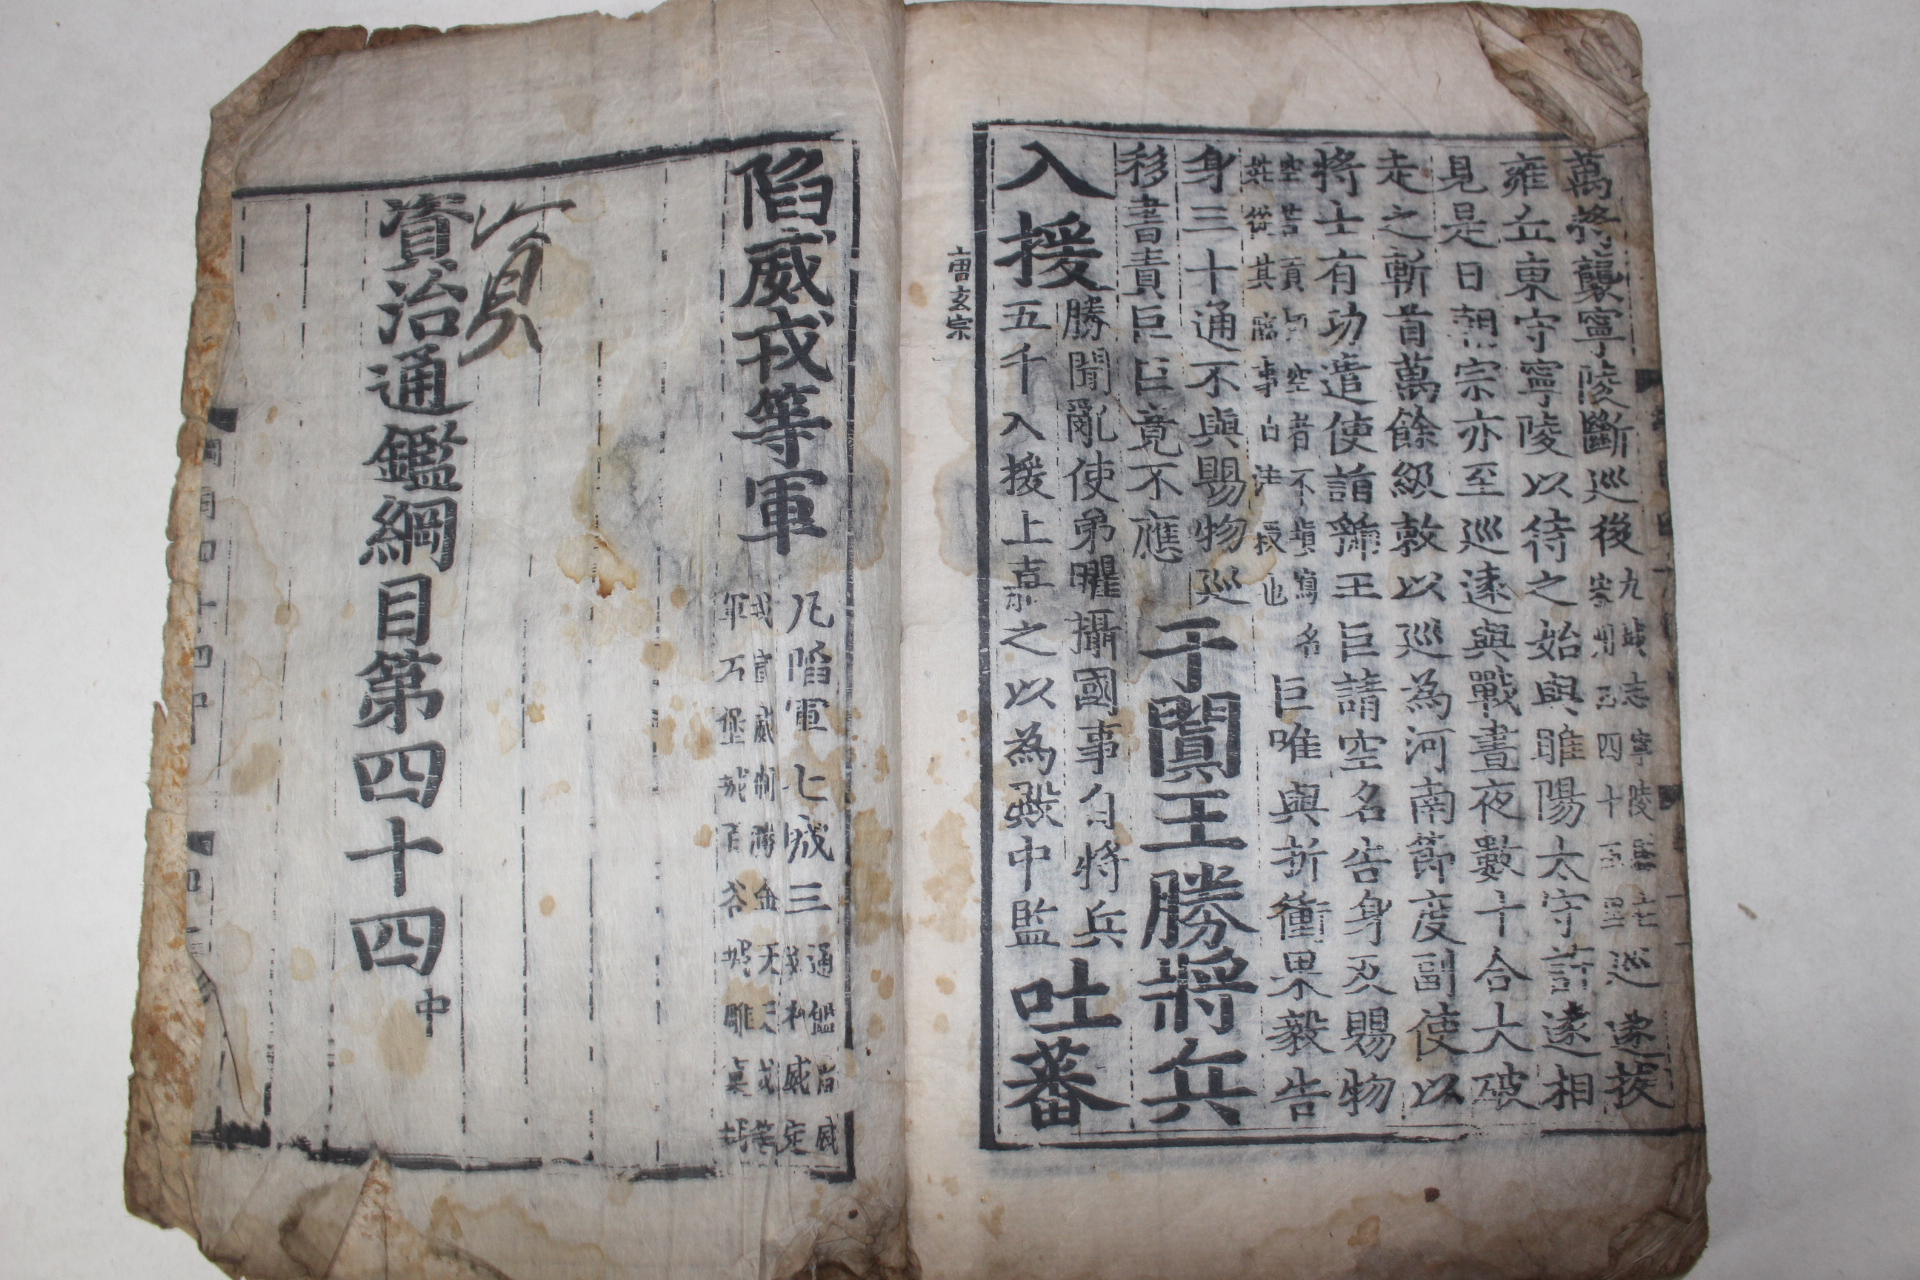 萬將襲寧陵斷巡後九域志寧陵在宋州西四十五里巡遂拔
雍丘東守寧陵以待之始與睢陽太守許遠相
見是日朝宗亦至巡遠與戰晝夜數十合大破
走之斬首萬餘級敕以巡為河南節度副使以
將士有功遣使詣虢王巨請空名告身及賜物
空名告身者不塡寫名從其臨事白注授也巨唯與折衝果毅告
身三十通不與賜物巡
移書責巨巨竟不應于闐王勝將兵
入援勝聞亂使弟曜攝國事自將兵
五千入援上嘉之以為殿中監吐蕃
唐玄宗
陷威戎等軍凡陷軍七城三通鑑曰威
戎神威定
戎宣威制勝金天天成等
軍石堡城百谷城雕窠城
資治通鑑綱目第四十四中